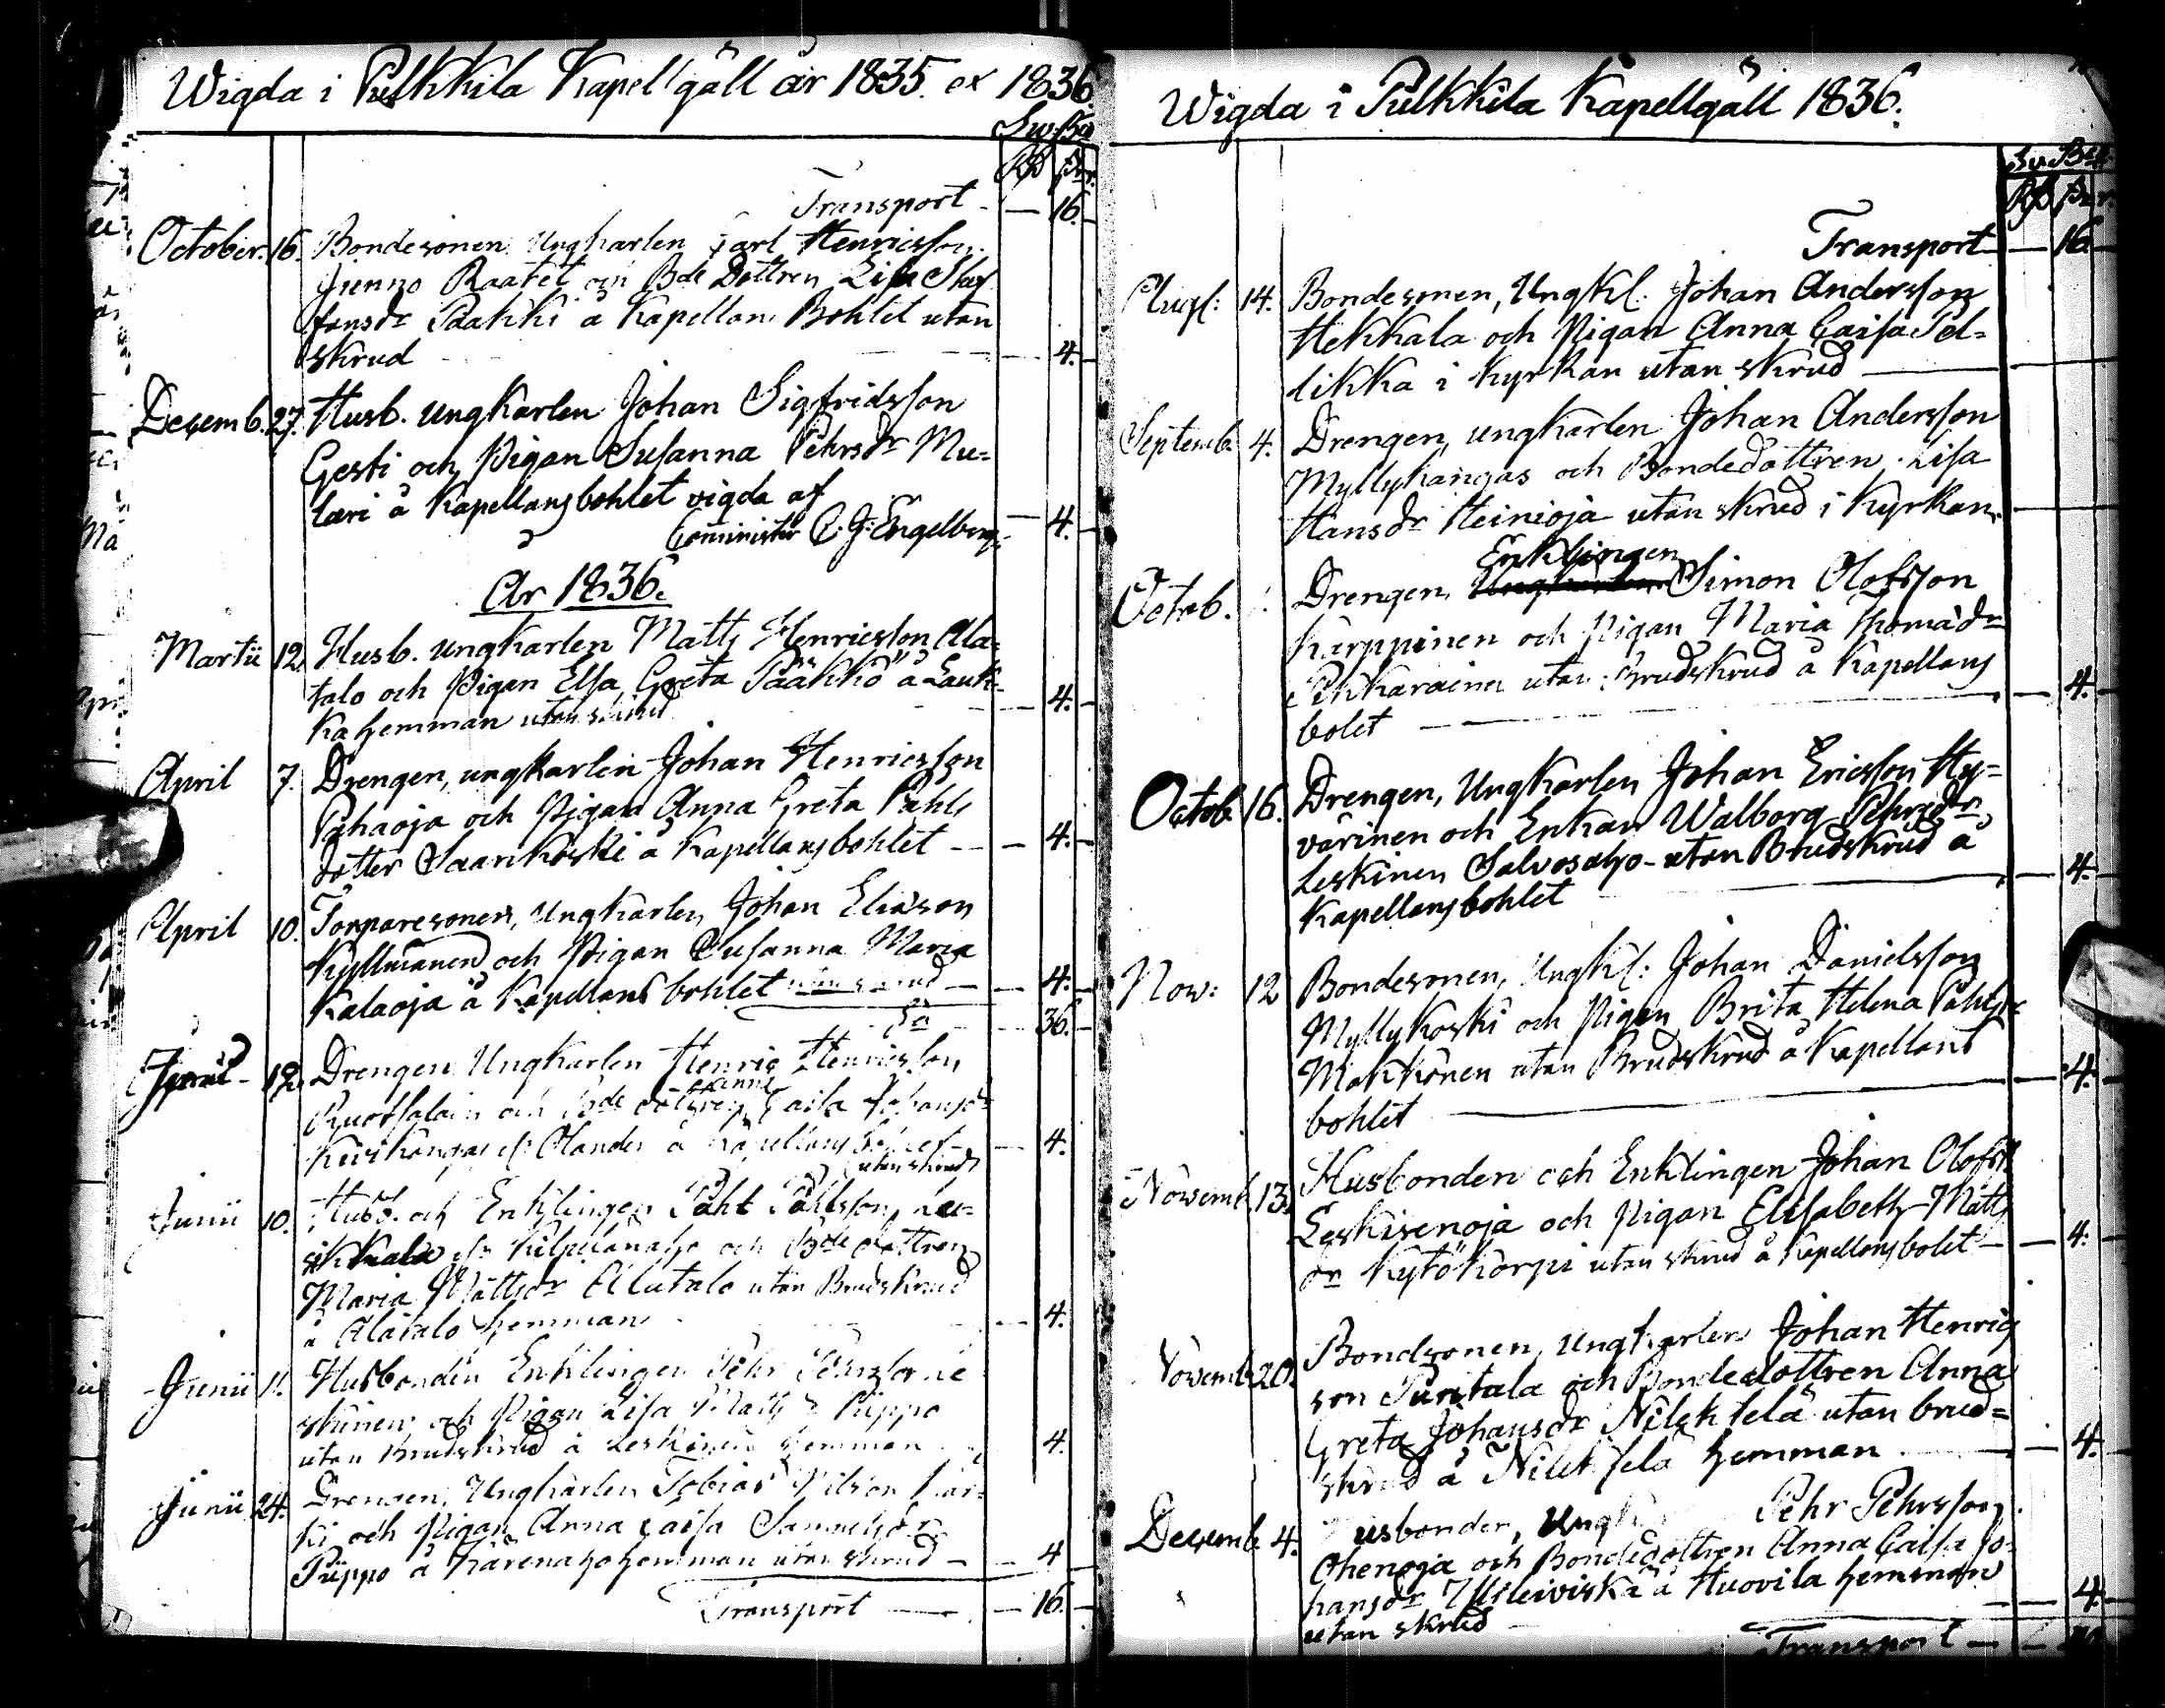 Wigda i Pulkkila Kapellgäll år 1835 et 1836.
Sv. Bco
Rß ß r.
Transport — 16.
October. 16. Bondesonen Ungkarlen Carl Henricsson
Junno Raatet och Bde Dottren Lisa
Paakki å Kapellans Bohlet utan
skrud — 4.
Decemb. 27. Husb. ungkarlen Johan Sigfridsson
Gesti och Pigan Susanna Pehrsdr Mu=
lari å Kapellansbohlet vigda af
Comminister C. J. Engelberg — 4.
År 1836.
Martii 12 Husb. ungkarlen Matts Henricsson Ala=
talo och Pigan Elsa Greta Pääkkö å Lauk=
ka hemman utan skrud — 4.
April 7. Drengen, ungkarlen Johan Henricsson
Pihaoja och Pigan Anna Greta Pahls
dotter Saarikoski å Kapellansbohlet — 4.
April 10. Torparesonen, Ungkarlen Johan Eliasson
Kyllmänen och Pigan Susanna Maria
Kalaoja å Kapellans bohlet utan skrud — 4.
Sa 36.
April 12. Drengen Ungkarlen Henric Henricsson
Anna
Ruotsalain och Bde dottren Caisa Johansdr
Kurkangas el. Olander å Kapellans bohlet — 4.
utan skrud
Junii 10. Husb. och Enklingen Pahl Pahlsson Leu=
Kilpuanaho och Bde dottren
Maria Mattsdr Alatalo utan Brudskrud
å Alatalo hemman — 4.
Junii 11. Husbonden Enklingen Pehr Pehrsson Le
skinen och Pigan Lisa Mattsdr Piippo
utan Brudskrud å Leskinen hemman 4.
Junii 24. Drengen, Ungkarlen Tobias Nilsson Kär=
ki och Pigan Anna Caisa Samuelsdr
Piippo å Kärenaho hemman utan skrud — 4
Transport — 16.
Wigda i Pulkkila Kapellgäll 1836.
Sv. Bco.
Rß ß r.
Transport — 16.
Aug: 14. Bondesonen, Ungkl: Johan Andersson
Hekkala och Pigan Anna Caisa Pel=
likka i Kyrkan utan skrud —
Septemb. 4. Drengen, ungkarlen Johan Andersson
Myllykangas och Bondedottren Lisa
Hansdr Heinioja utan skrud i Kyrkan.
Enklingen
Octob. Drengen, Simon Olofsson
Karppinen och Pigan Maria Thomadr
Pikkarainen utan Brudskrud å Kapellans
bolet — 4.
Octob 16. Drengen, Ungkarlen Johan Ericsson Hy=
värinen och Enkan Walborg Pehrsdr
Leskinen Salvosaho utan Brudskrud å
Kapellansbohlet — 4.
Nov: 12 Bondesonen, Ungkl: Johan Danielsson
Myllykoski och Pigan Brita Helena Pahlsdr
Makkonen utan Brudskrud å Kapellans
bohlet — 4.
Novemb. 13. Husbonden och Enklingen Johan Olofss.
Leskisenoja och Pigan Elisabeth Matts
dr Kytökorpi utan skrud å Kapellansbolet — 4.
Novemb. 20. Bondsonen, Ungkarlen Johan Henrics
son Puritala och Bondedottren Anna
Greta Johansdr Nilekselä utan brud=
skrud å Nilekselä hemman — 4.
Decemb. 4. Husbonden, Ungk Pehr Pehrsson
Ohenoja och Bondedottren Anna Caisa Jo=
hansdr Ylileiviskä å Huovila hemman
utan skrud — 4.
Transport —